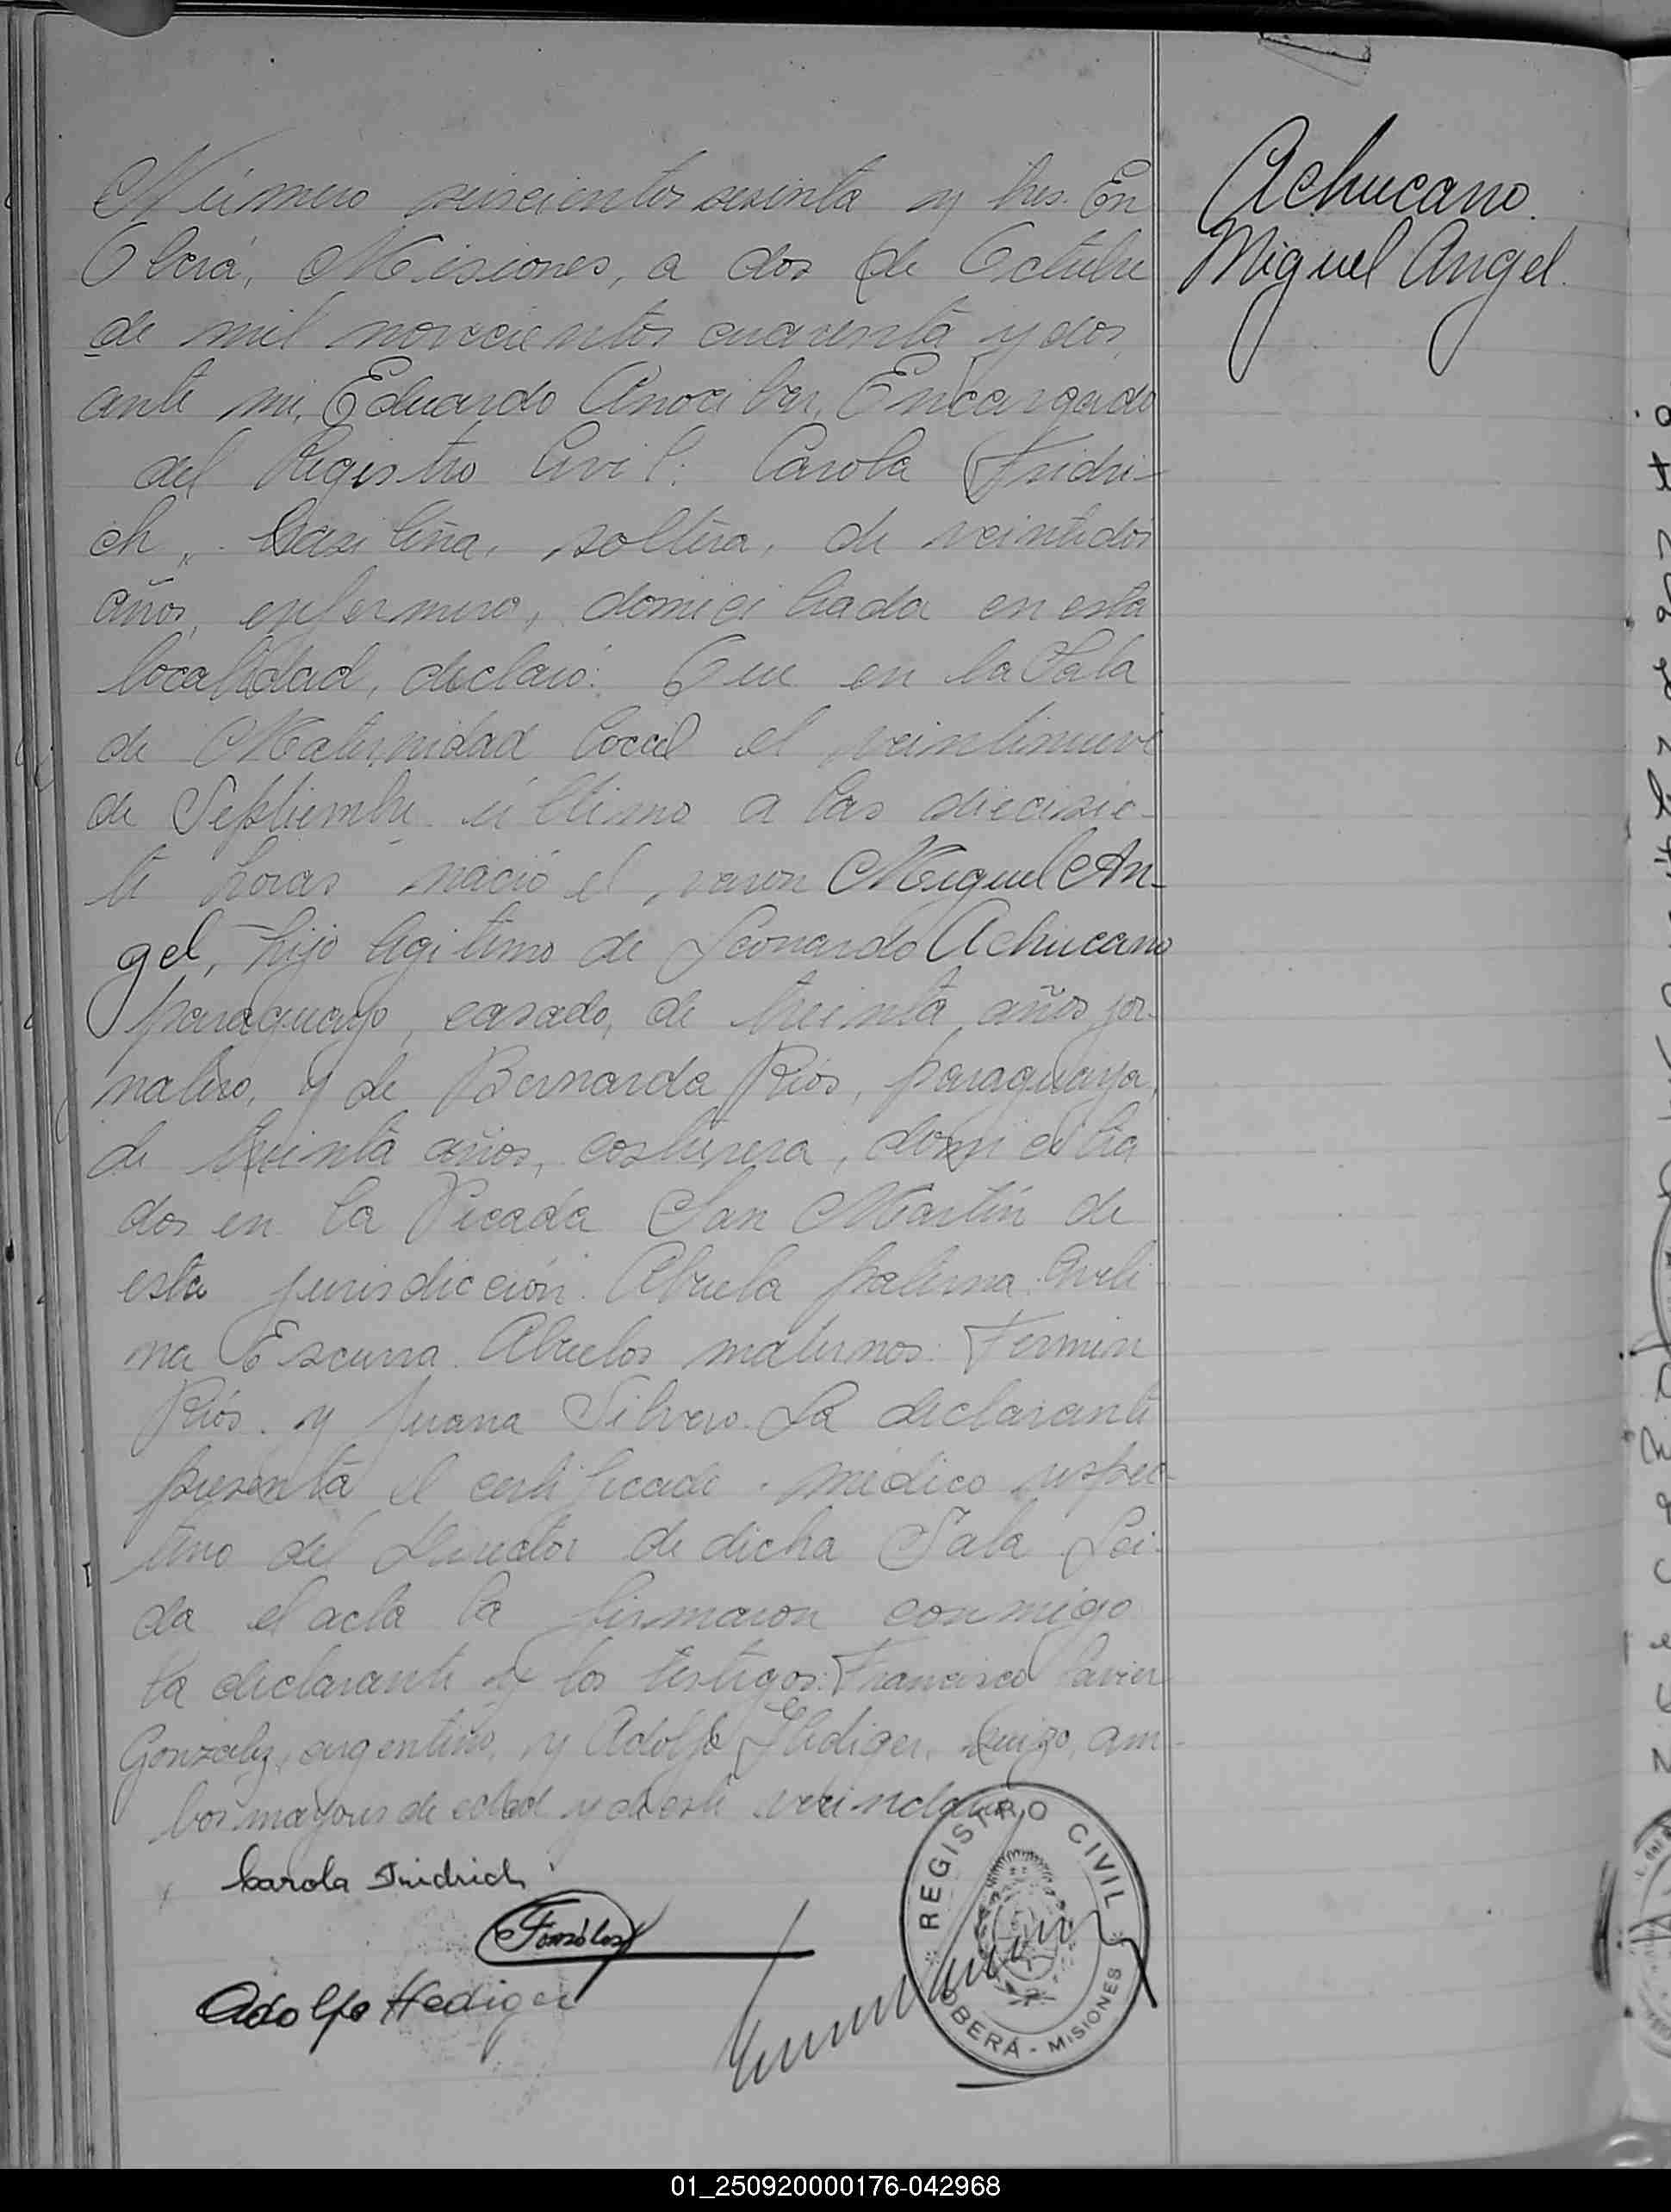 Achucano.
Miguel Angel.
Número seiscientos sesenta y tres. En
Oberá, Misiones, a dos de Octubre
de mil novecientos cuarenta y dos,
ante mi, Eduardo Anocibar, Encargado
del Registro Civil: Carola Fridri-
ch, brasileña, soltera, de veintidos
años, enfermera, domiciliada en esta
localidad, declaró: Que en la Sala
de Maternidad local el veintinueve
de Septiembre último a las diecisie-
te horas nació el varon Miguel An-
gel, hijo legitimo de Leonardo Achucano
paraguayo, casado, de treinta años jor-
nalero, y de Bernarda Ríos, paraguaya,
de treinta años, costurera, domicilia
dos en la Picada San Martín de
esta jurisdicción. Abuela paterna: Aveli-
na Escurra. Abuelos maternos: Fermin
Ríos y Juana Silvero. La declarante
presenta el certificado médico respec-
tivo del Director de dicha Sala. Lei-
da el acta la firmaron conmigo
la declarante y los testigos: Francisco Javier
Gonzalez, argentino, y Adolfo Hediger, suizo, am-
bos mayores de edad y de este vecindario
Carola Fridrich
Gonzáles
Adolfo Hediger
REGISTRO CIVIL
OBERÁ - MISIONES
01_250920000176-042968